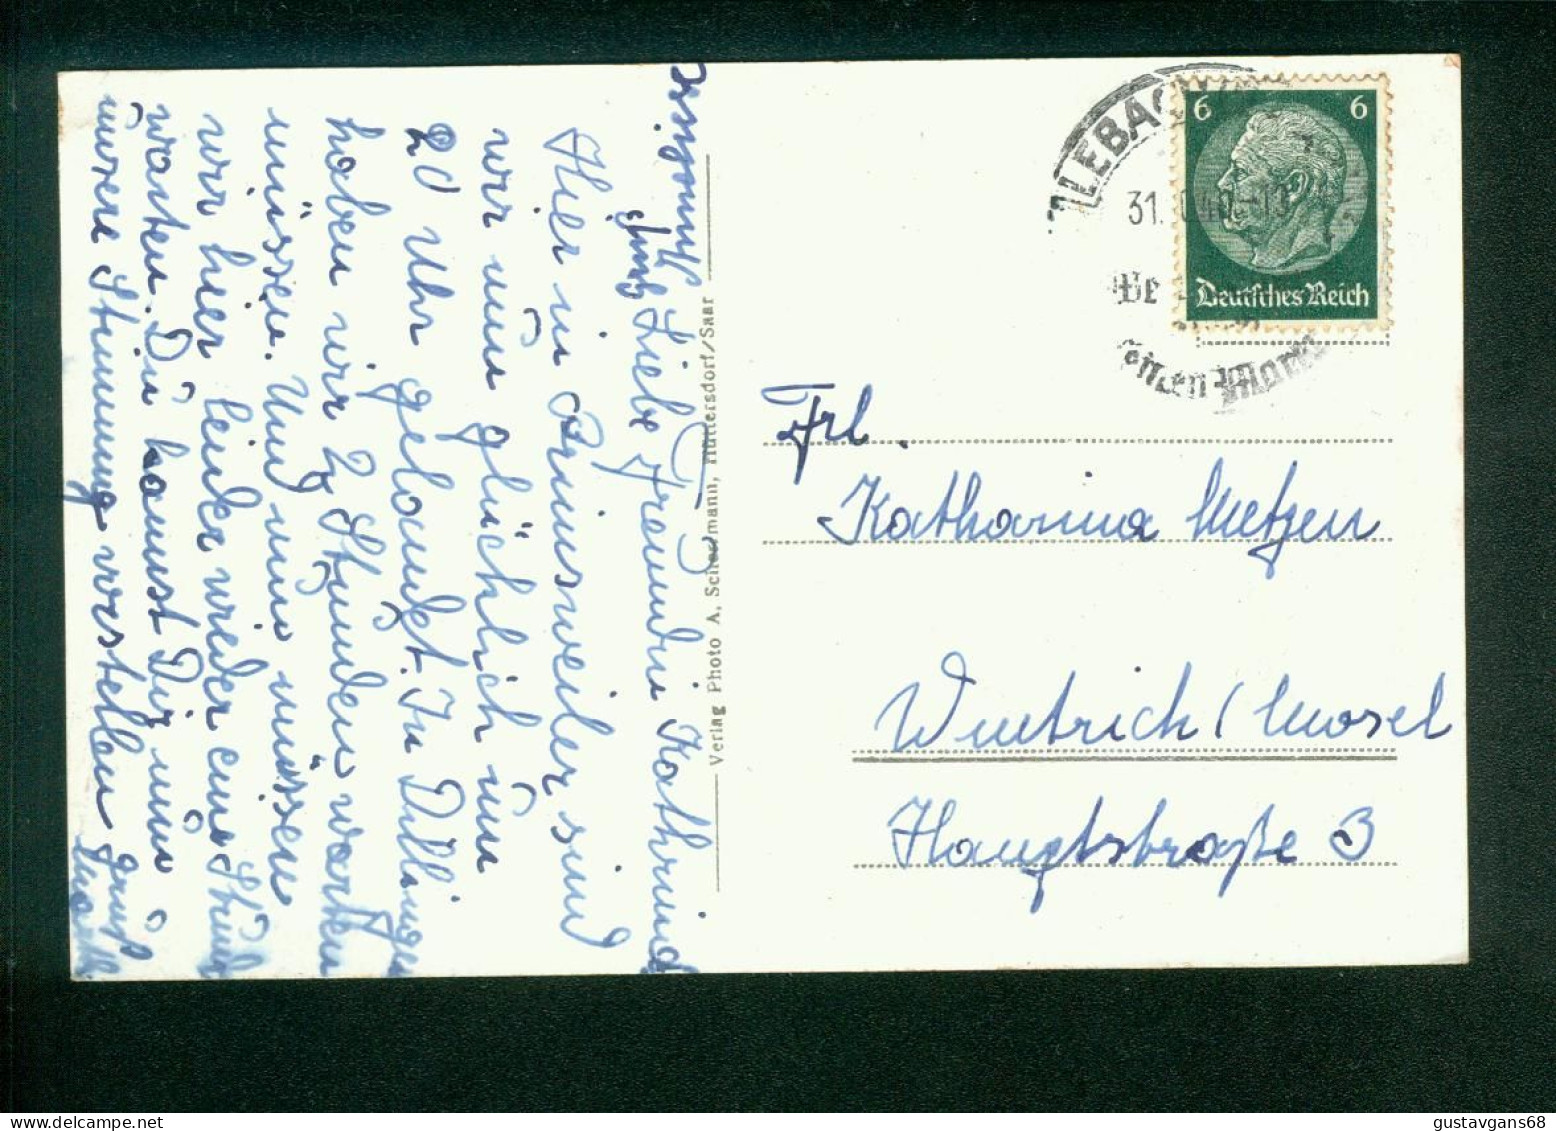 Liebe Freundin Kathrina
Hier in Primsweiler sind
wir nun glücklich um
20 Uhr gelandet. In Dillingen
haben wir 2 Stunden warten
müssen. Und nun müssen
wir hier leider wieder eine Stunde
warten. Du kannst Dir nun
unsere Stimmung vorstellen
Verlag Photo A. Scheermann, Hüttersdorf/Saar
31.
6 6
Deutsches Reich
Frl.
Katharina Metzen
Wintrich/Mosel
Hauptstraße 3
gustavgans68